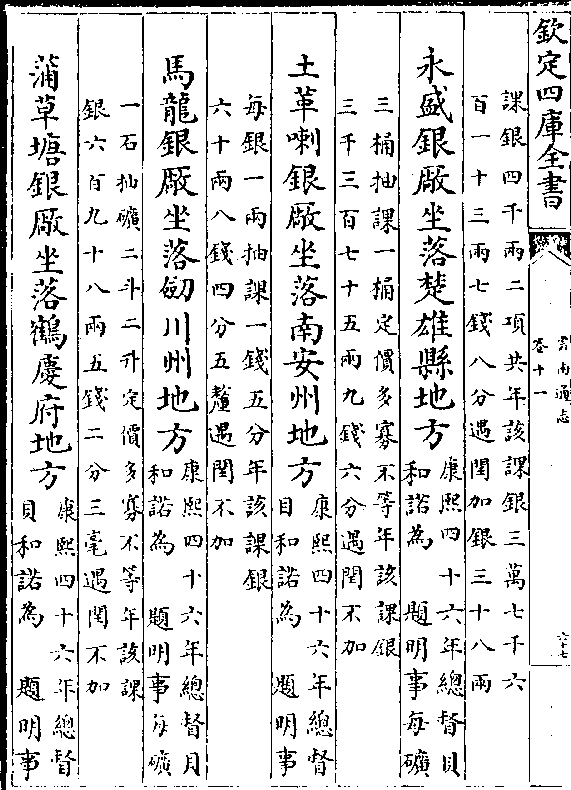 欽定四庫全書
雲南通志
卷十一
六十七
課銀四千兩二項共年該課銀三萬七千六
百一十三兩七錢八分遇閏加銀三十八兩
永盛銀厰坐落楚雄縣地方
康熙四十六年總督貝
和諾為 題明事每礦
三桶抽課一桶定價多寡不等年該課銀
三千三百七十五兩九錢六分遇閏不加
土革喇銀厰坐落南安州地方
康熙四十六年總督
貝和諾為 題明事
每銀一兩抽課一錢五分年該課銀
六十兩八錢四分五釐遇閏不加
馬龍銀厰坐落劒川州地方
康熙四十六年總督貝
和諾為 題明事每礦
一石抽礦二斗二升定價多寡不等年該課
銀六百九十八兩五錢二分三毫遇閏不加
蒲草塘銀厰坐落鶴慶府地方
康熙四十六年總督
貝和諾為 題明事